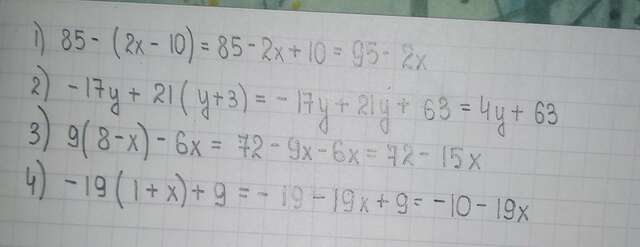 1) 85 - (2x - 10) = 85 - 2x + 10 = 95 - 2x
2) -17y + 21(y+3) = -17y + 21y + 63 = 4y + 63
3) 9(8-x) - 6x = 72 - 9x - 6x = 72 - 15x
4) -19(1+x) + 9 = -19 - 19x + 9 = -10 - 19x